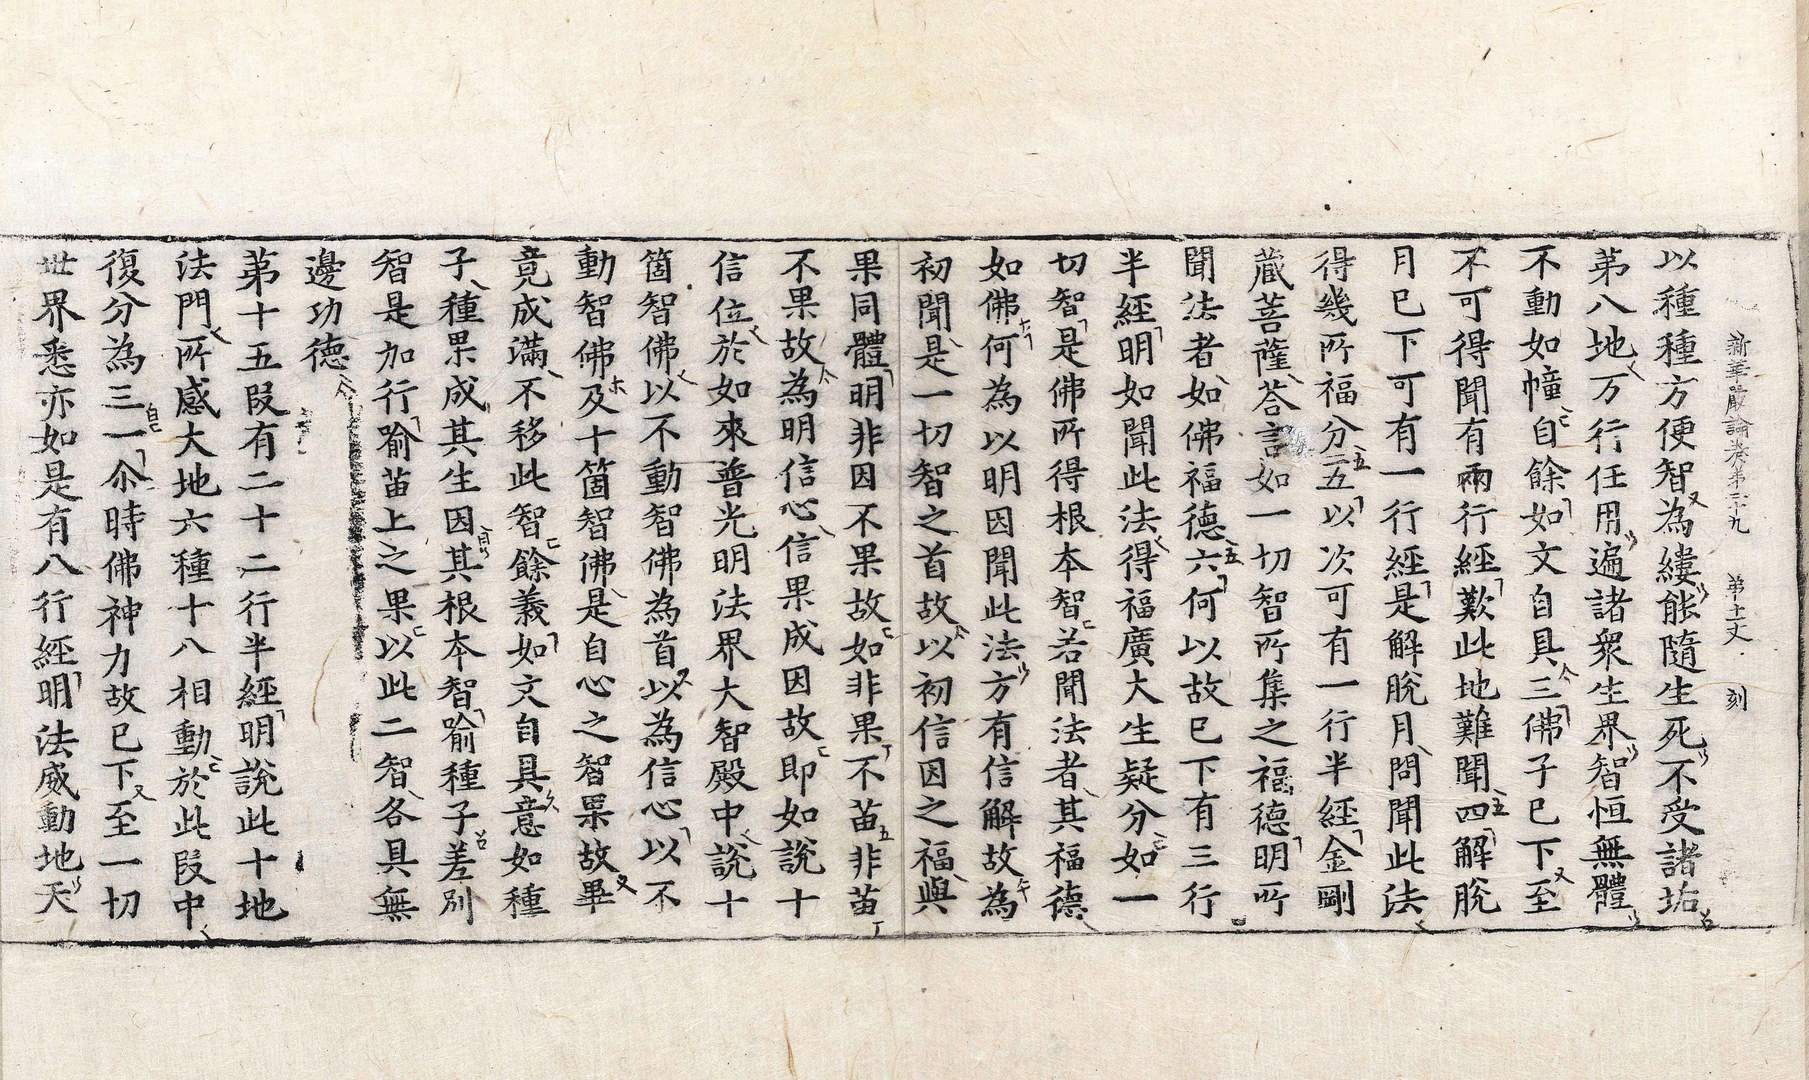 新華嚴論卷第三十九　第十二丈　刻
以種種方便智為縷能隨生死不受諸垢
第八地万行任用遍諸衆生界智恒無體
不動如幢自餘如文自具三佛子已下至
不可得聞有兩行經歎此地難聞四解脫
月已下可有一行經是解脫月問聞此法
得幾所福分五以次可有一行半經金剛
藏菩薩荅言如一切智所集之福德明所
聞法者如佛福德六何以故已下有三行
半經明如聞此法得福廣大生疑分如一
切智是佛所得根本智若聞法者其福德
如佛何為以明因聞此法方有信解故為
初聞是一切智之首故以初信因之福與
果同體明非因不果故如非果不苗非苗
不果故為明信心信果成因故即如說十
信位於如來普光明法界大智殿中說十
箇智佛以不動智佛為首以為信心以不
動智佛及十箇智佛是自心之智果故畢
竟成滿不移此智餘義如文自具意如種
子種果成其生因其根本智喻種子差別
智是加行喻苗上之果以此二智各具無
邊功德
第十五段有二十二行半經明說此十地
法門所感大地六種十八相動於此段中
復分為三一尒時佛神力故已下至一切
世界悉亦如是有八行經明法威動地天